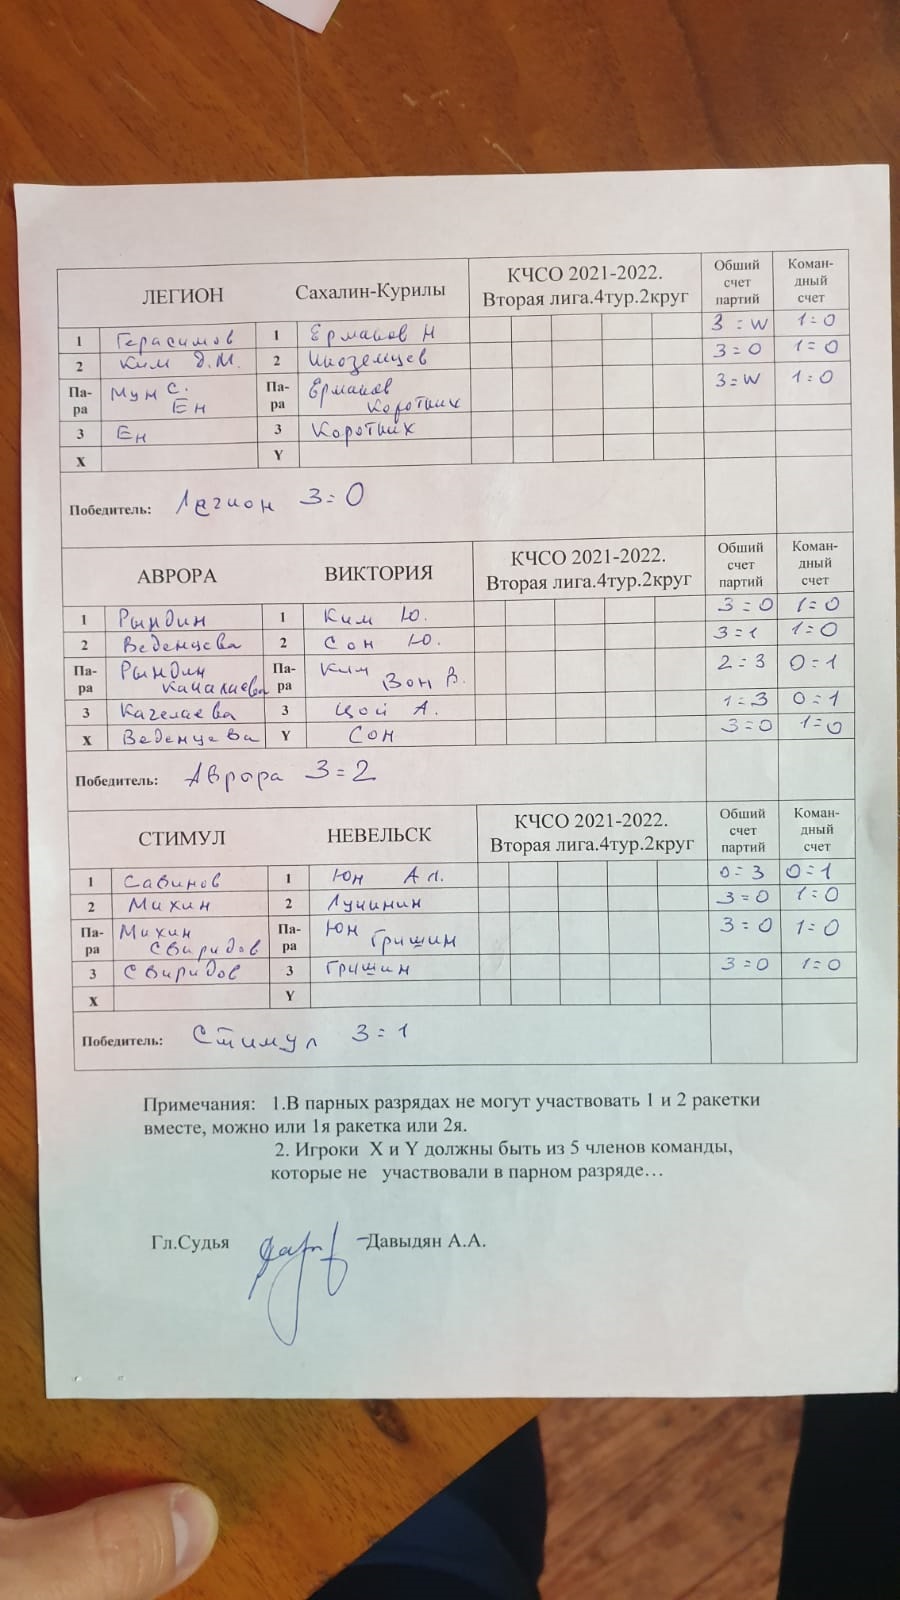 ЛЕГИОН Сахалин-Курилы КЧСО 2021-2022. Вторая лига.4тур.2круг Обший счет партий Коман-дный счет
1 Герасимов 1 Ермаков Н 3 = W 1=0
2 Ким Д.М. 2 Иноземцев 3=0 1=0
Па-ра Мун С. Ен Па-ра Ермаков Коротких 3=W 1=0
3 Ен 3 Коротких
X Y
Победитель: Легион 3=0
АВРОРА ВИКТОРИЯ КЧСО 2021-2022. Вторая лига.4тур.2круг Обший счет партий Коман-дный счет
1 Рындин 1 Ким Ю. 3=0 1=0
2 Веденцева 2 Сон Ю. 3=1 1=0
Па-ра Рындин Па-ра Ким Вон В. 2=3 0=1
3 3 Цой А. 1=3 0=1
X Веденцева Y Сон 3=0 1=0
Победитель: Аврора 3=2
СТИМУЛ НЕВЕЛЬСК КЧСО 2021-2022. Вторая лига.4тур.2круг Обший счет партий Коман-дный счет
1 Савинов 1 Юн Ал. 0=3 0=1
2 Михин 2 Лучинин 3=0 1=0
Па-ра Михин Свиридов Па-ра Юн Гришин 3=0 1=0
3 Свиридов 3 Гришин 3=0 1=0
X Y
Победитель: Стимул 3=1
Примечания: 1.В парных разрядах не могут участвовать 1 и 2 ракетки
вместе, можно или 1я ракетка или 2я.
2. Игроки X и Y должны быть из 5 членов команды,
которые не участвовали в парном разряде…
Гл.Судья -Давыдян А.А.